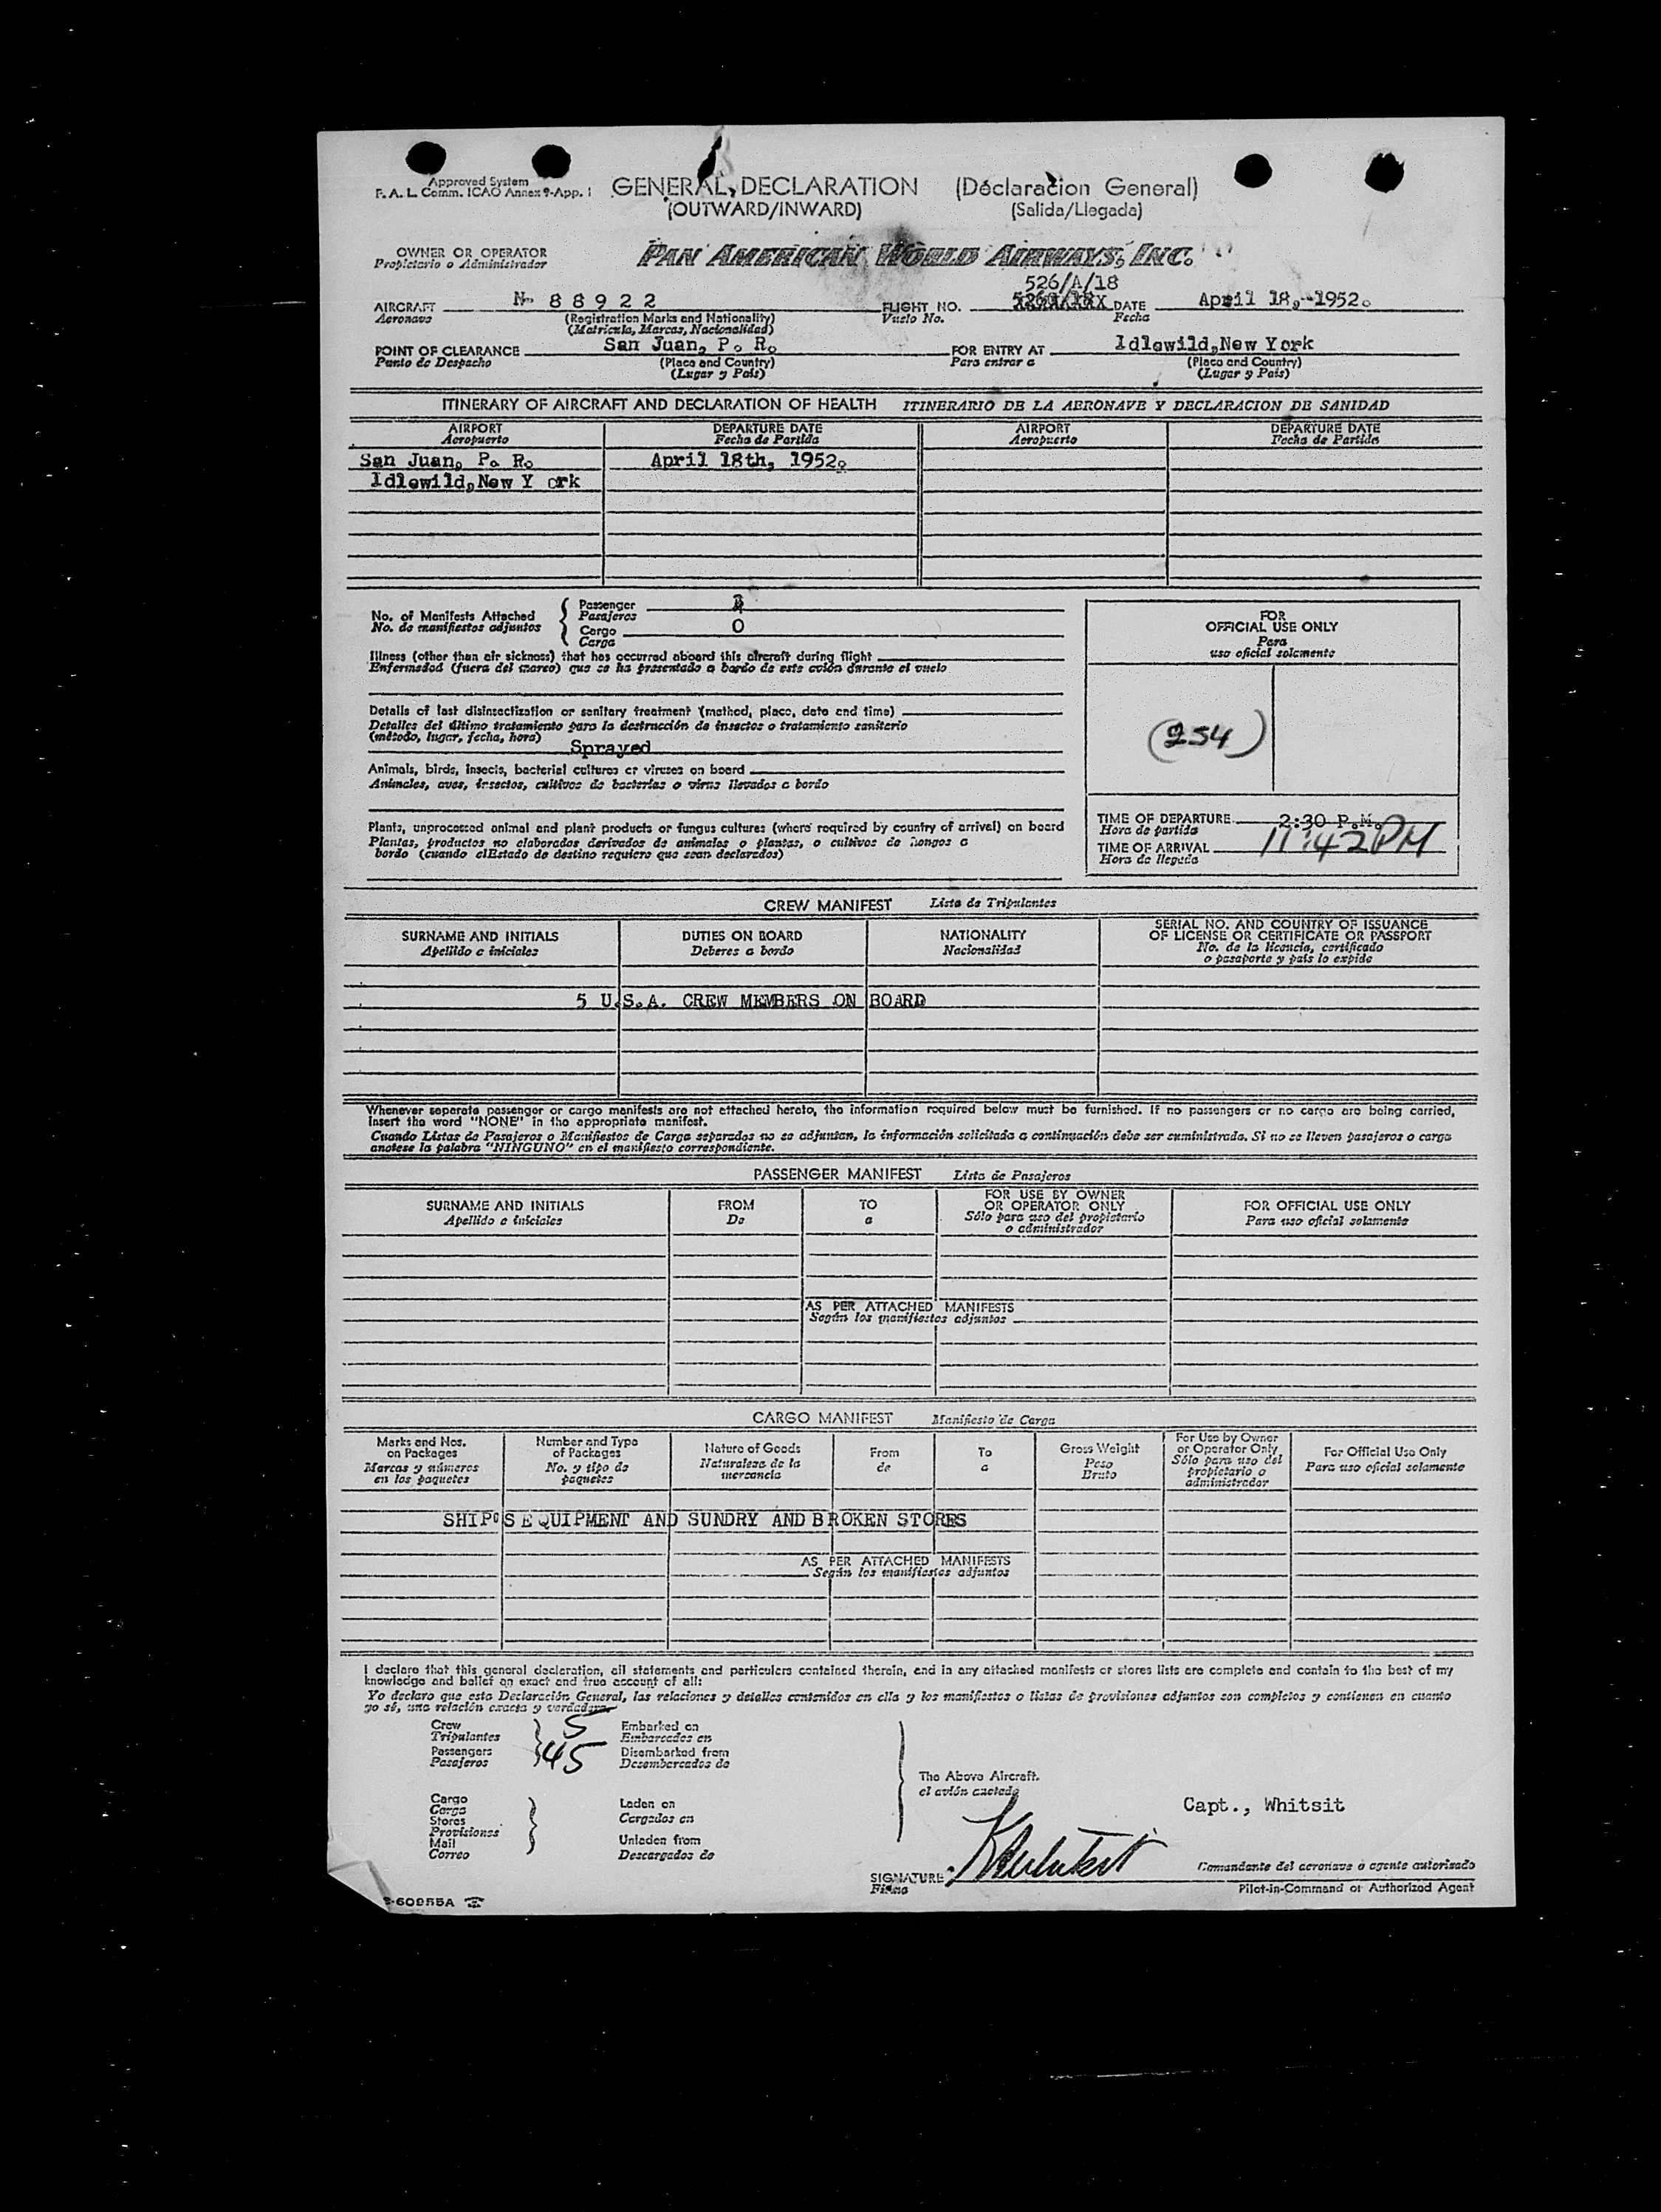 Approved System
F. A. L. Comm. ICAO Annex 9-App. I
GENERAL DECLARATION (Déclaración General)
(OUTWARD/INWARD) (Salida/Llegada)
OWNER OR OPERATOR
Propietario o Administrador
PAN AMERICAN WORLD AIRWAYS, INC.
526/A/18
AIRCRAFT N- 88922 FLIGHT NO. DATE April 18, 1952.
Aeronave (Registration Marks and Nationality) Vuelo No. Fecha
(Matricula, Marcas, Nacionalidad)
POINT OF CLEARANCE San Juan, P. R. FOR ENTRY AT Idlewild, New York
Punto de Despacho (Place and Country) Para entrar a (Place and Country)
(Lugar y País) (Lugar y País)
ITINERARY OF AIRCRAFT AND DECLARATION OF HEALTH ITINERARIO DE LA AERONAVE Y DECLARACION DE SANIDAD
AIRPORT DEPARTURE DATE AIRPORT DEPARTURE DATE
Aeropuerto Fecha de Partida Aeropuerto Fecha de Partida
San Juan, P. R. April 18th, 1952.
Idlewild, New Y ork
No. of Manifests Attached
No. de manifiestos adjuntos
Passenger
Pasajeros
Cargo 0
Carga
Illness (other than air sickness) that has occurred aboard this aircraft during flight
Enfermedad (fuera del mareo) que se ha presentado a bordo de este avión durante el vuelo
Details of last disinsectization or sanitary treatment (method, place, date and time)
Detalles del último tratamiento para la destrucción de insectos o tratamiento sanitario
(método, lugar, fecha, hora) Sprayed
Animals, birds, insects, bacterial cultures or viruses on board
Animales, aves, insectos, cultivos de bacterias o virus llevados a bordo
Plants, unprocessed animal and plant products or fungus cultures (where required by country of arrival) on board
Plantas, productos no elaborados derivados de animales o plantas, o cultivos de hongos a
bordo (cuando elEstado de destino requiere que sean declarados)
FOR
OFFICIAL USE ONLY
Para
uso oficial solamente
(254)
TIME OF DEPARTURE 2:30 P.M.
Hora de partida
TIME OF ARRIVAL 11:42 PM
Hora de llegada
CREW MANIFEST Lista de Tripulantes
SURNAME AND INITIALS DUTIES ON BOARD NATIONALITY SERIAL NO. AND COUNTRY OF ISSUANCE
OF LICENSE OR CERTIFICATE OR PASSPORT
Apellido e iniciales Deberes a bordo Nacionalidad No. de la licencia, certificado
o pasaporte y país lo expide
5 U.S.A. CREW MEMBERS ON BOARD
Whenever separate passenger or cargo manifests are not attached hereto, the information required below must be furnished. If no passengers or no cargo are being carried,
insert the word "NONE" in the appropriate manifest.
Cuando Listas de Pasajeros o Manifiestos de Carga separados no se adjuntan, la información solicitada a continuación debe ser suministrada. Si no se lleven pasajeros o carga
anotese la palabra "NINGUNO" en el manifiesto correspondiente.
PASSENGER MANIFEST Lista de Pasajeros
SURNAME AND INITIALS FROM TO FOR USE BY OWNER FOR OFFICIAL USE ONLY
OR OPERATOR ONLY
Apellido e iniciales De a Sólo para uso del propietario Para uso oficial solamente
o administrador
AS PER ATTACHED MANIFESTS
Según los manifiestos adjuntos
CARGO MANIFEST Manifiesto de Carga
Marks and Nos. Number and Type Nature of Goods From To Gross Weight For Use by Owner For Official Use Only
on Packages of Packages Naturaleza de la de a Peso or Operator Only Para uso oficial solamente
Marcas y números No. y tipo de mercancía Bruto Sólo para uso del
en los paquetes paquetes propietario o
administrador
SHIP'S E QUIPMENT AND SUNDRY AND BROKEN STORES
AS PER ATTACHED MANIFESTS
Según los manifiestos adjuntos
I declare that this general declaration, all statements and particulars contained therein, and in any attached manifests or stores lists are complete and contain to the best of my
knowledge and belief an exact and true account of all:
Yo declaro que esta Declaración General, las relaciones y detalles contenidos en ella y los manifiestos o listas de provisiones adjuntos son completos y contienen en cuanto
yo sé, una relación exacta y verdadera.
Crew 5 Embarked on
Tripulantes Embarcados en
Passengers 45 Disembarked from
Pasajeros Desembarcados de
The Above Aircraft.
el avión anotado
Cargo Laden on
Carga Cargados en
Stores
Provisiones
Mail Unladen from
Correo Descargados de
Capt., Whitsit
SIGNATURE
Firma
Comandante del aeronave o agente autorizado
Pilot-in-Command or Authorized Agent
60955A